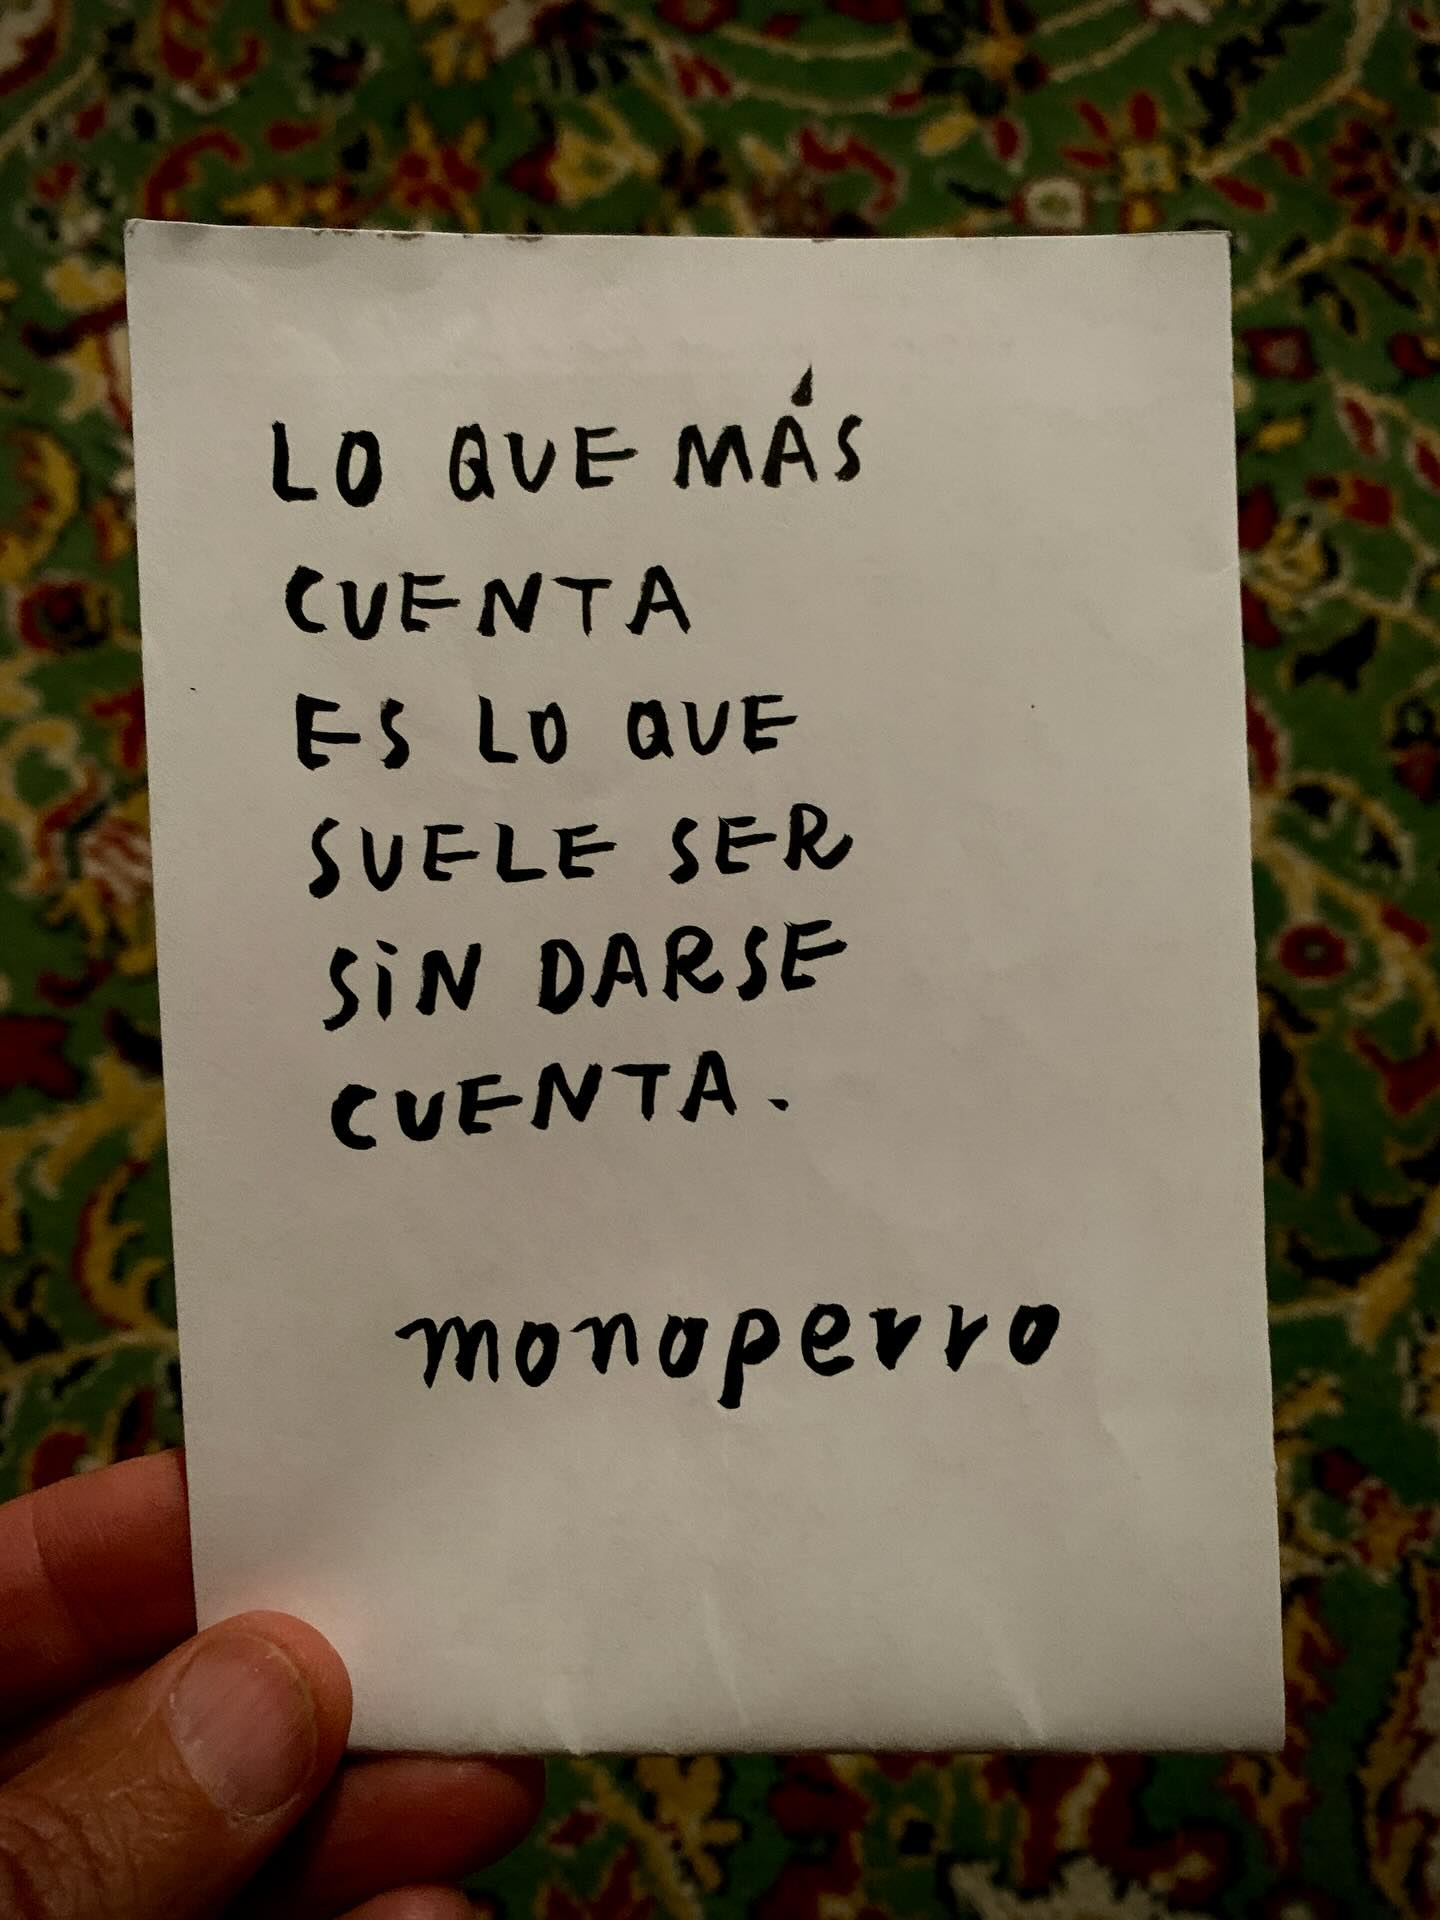 LO QUE MÁS
CUENTA
ES LO QUE
SUELE SER
SiN DARSE
CUENTA.
monoperro